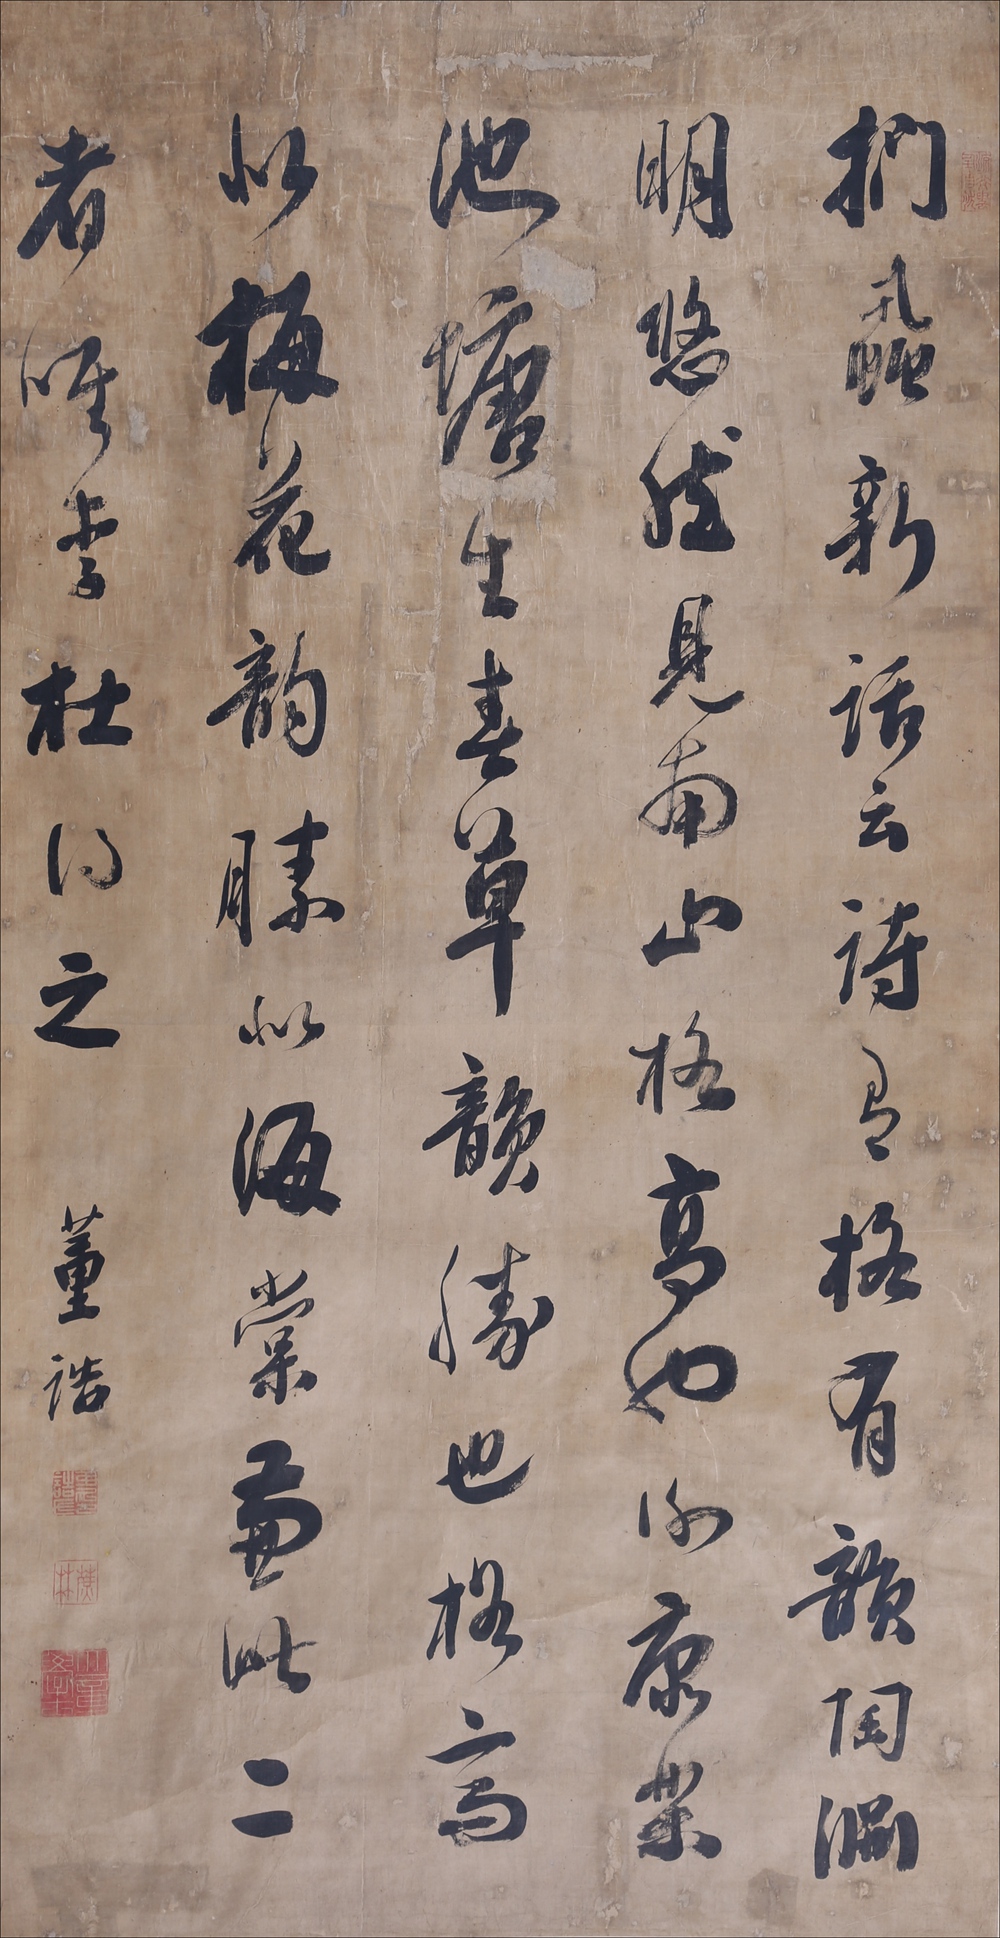 捫蝨新話云詩有格有韻陶淵
明悠然見南山格高也謝康樂
池塘生春草韻勝也格高
似梅花韻勝似海棠兼此二
者唯李杜得之
董誥